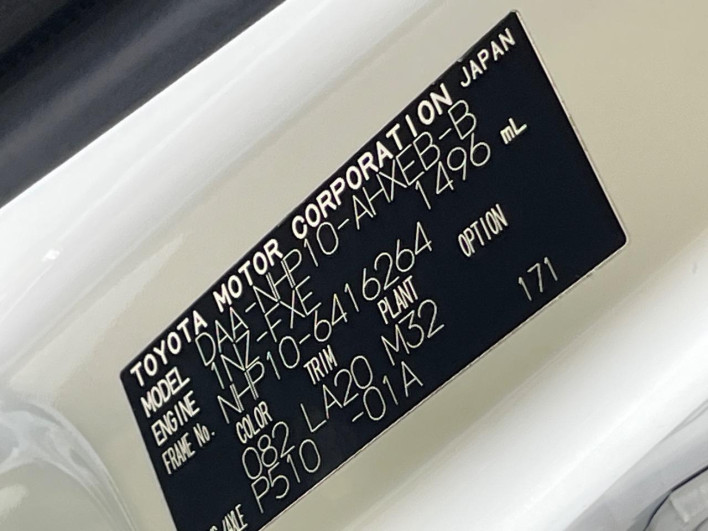 TOYOTA MOTOR CORPORATION JAPAN
MODEL DAA-NHP10-AHXEB-B
ENGINE 1NZ-FXE 1496 mL
FRAME No. NHP10-6416264
COLOR TRIM PLANT OPTION
082 LA20 M32 171
/AXLE P510 -01A